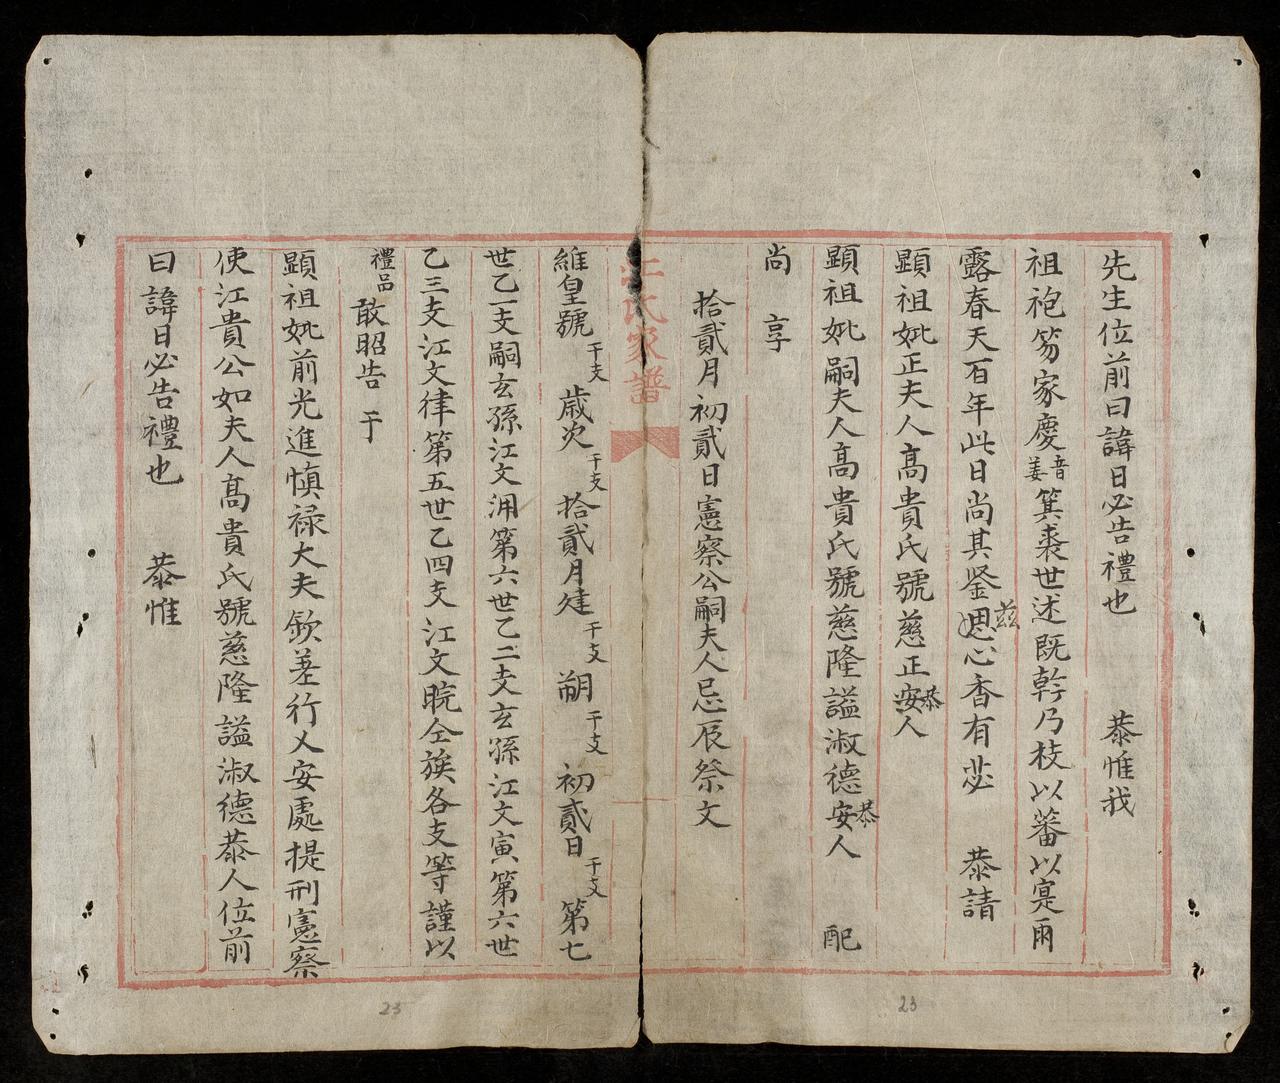 先生位前曰諱日必告禮也 恭惟我
祖袍笏家慶音姜箕裘世述既幹乃枝以蕃以寔雨
露春天百年此日尚其鉴兹恩心香有苾 恭請
顯祖妣正夫人髙貴氏號慈正安恭人
顯祖妣嗣夫人髙貴氏號慈隆謚淑德安恭人 配
尚 享
拾貳月初貳日憲察公嗣夫人忌辰祭文
江氏家譜
維皇號干支歲次干支拾貳月建干支朔干支初貳日干支第七
世乙一支嗣玄孫江文㳙第六世乙二支玄孫江文寅第六世
乙三支江文律第五世乙四支江文晥仝族各支等謹以
禮品敢昭告 于
顯祖妣前光進慎禄大夫欽差行乂安處提刑憲察
使江貴公如夫人髙貴氏號慈隆謚淑德恭人位前
曰諱日必告禮也 恭惟
23
23